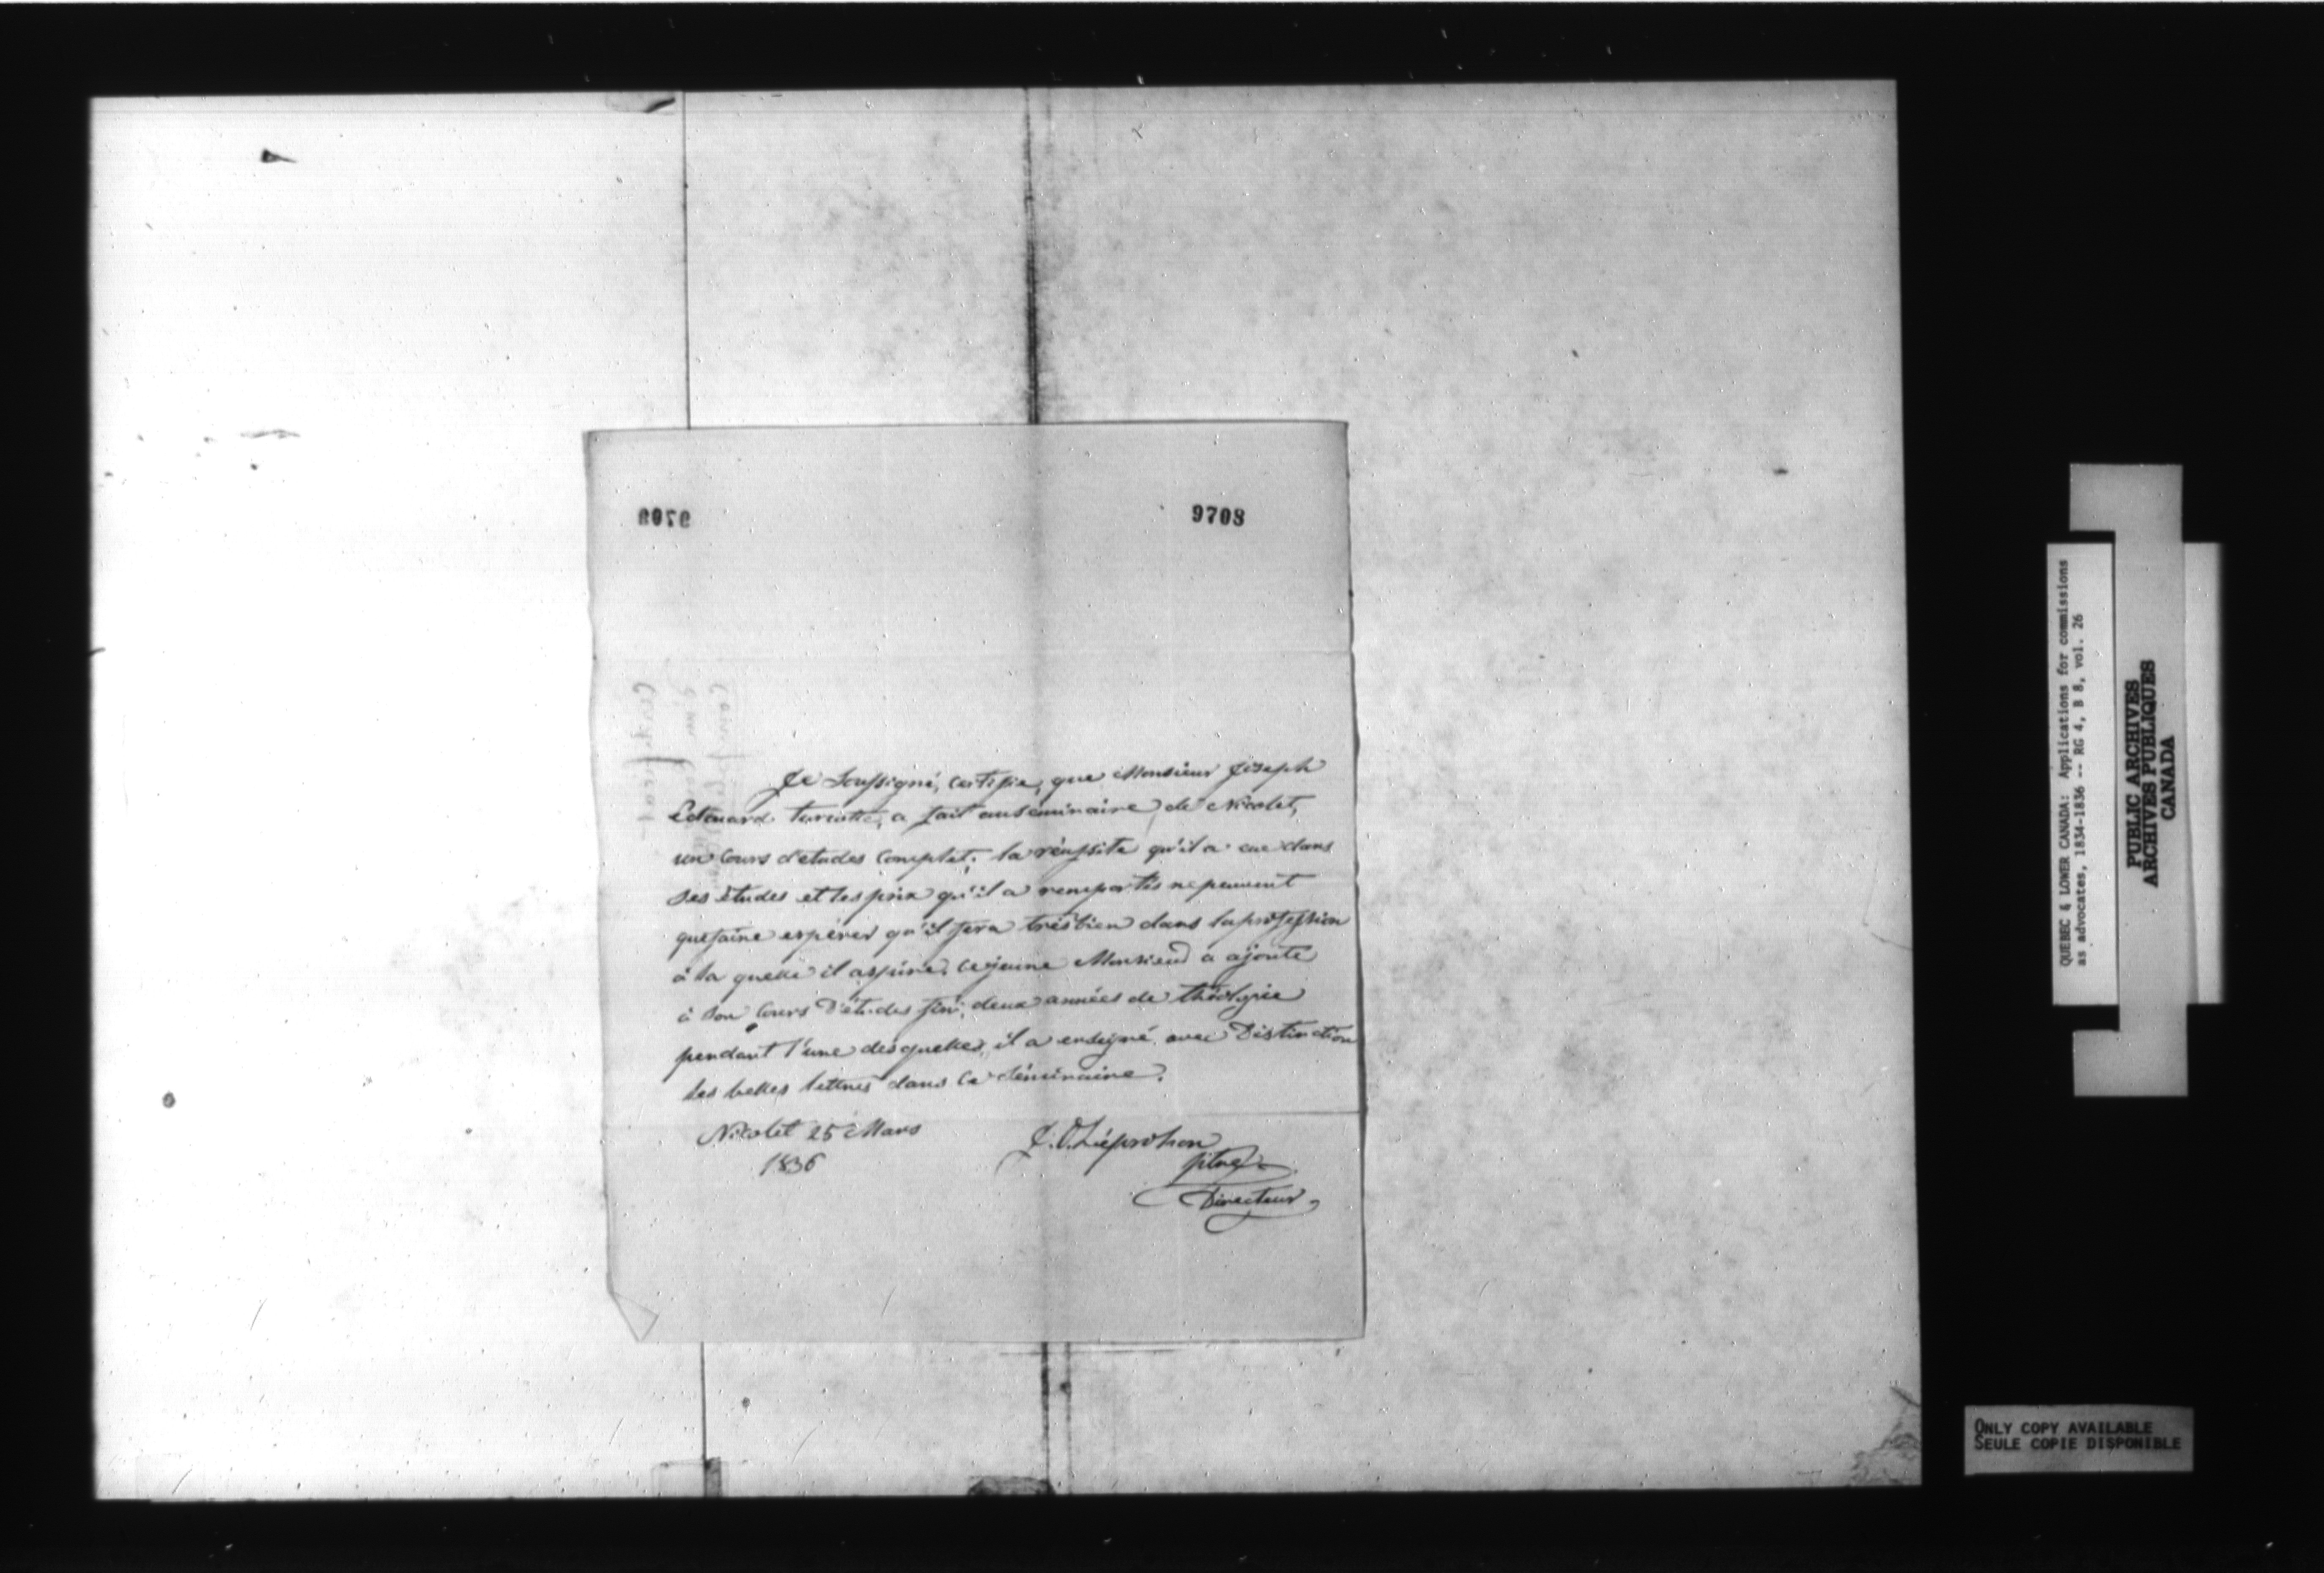 9708
Je Soussigné, certifie, que Monsieur Joseph
Edouard Turcotte, a fait au séminaire de Nicolet,
un Cours d'études Complet; la réussite qu'il a eue dans
ses études et les prix qu'il a remportés ne peuvent
que faire espérer qu'il fera très bien dans la profession
à la quelle il aspire. Ce jeune Monsieur a ajouté
à son Cours d'études fini, deux années de théologie
pendant l'une desquelles, il a enseigné avec Distinction
les belles lettres dans ce séminaire.
Nicolet 25 Mars
1836
J. O. Léprohon
ptre
Directeur
QUEBEC & LOWER CANADA: Applications for commissions
as advocates, 1834-1836 -- RG 4, B 8, vol. 26
PUBLIC ARCHIVES
ARCHIVES PUBLIQUES
CANADA
ONLY COPY AVAILABLE
SEULE COPIE DISPONIBLE